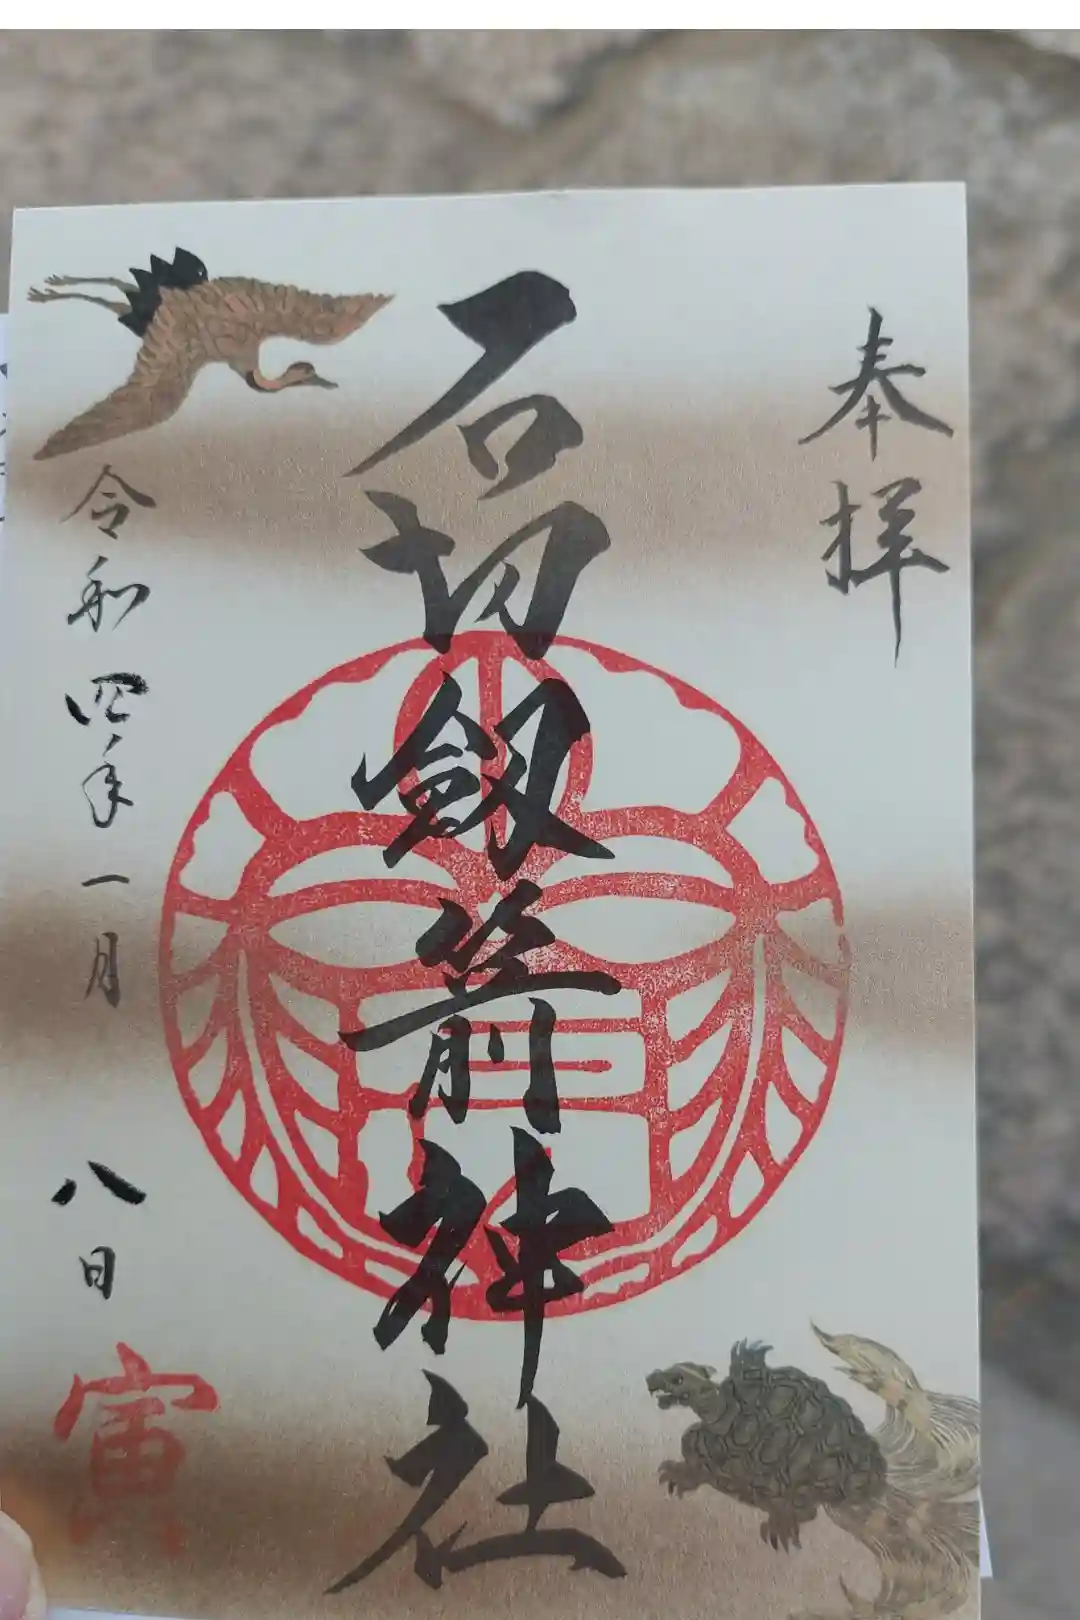 奉拝
石切劔箭神社
令和四年一月八日
寅